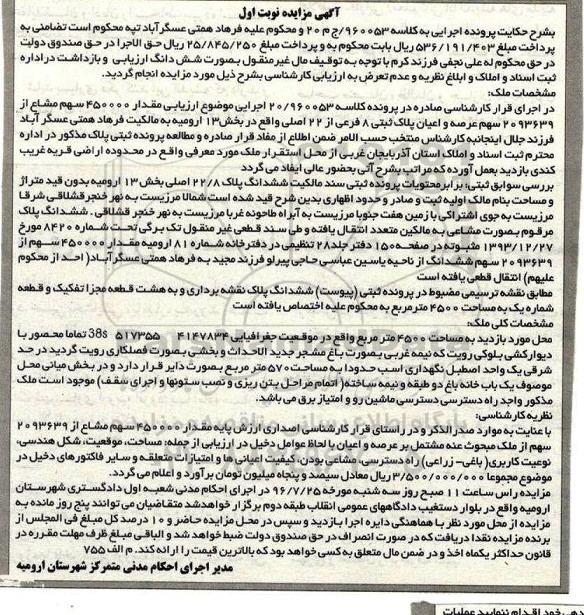 آگهی مزایده نوبت اول
بشرح حکایت پرونده اجرایی به کلاسه ۹۶۰۰۵۳/ج م ۲۰ و محکوم علیه فرهاد همتی عسگرآباد تپه محکوم است تضامنی به
پرداخت مبلغ ۵۳۶/۱۹۱/۴۰۳ ریال بابت محکوم به و پرداخت مبلغ ۲۵/۸۴۵/۲۵۰ ریال حق الاجرا در حق صندوق دولت
در حق محکوم له علی نجفی فرزند کرم با توجه به توقیف مال غیر منقول بصورت شش دانگ ارزیابی و بازداشت در اداره
ثبت اسناد و املاک و ابلاغ نظریه و عدم تعرض به ارزیابی کارشناسی بشرح ذیل مورد مزایده انجام گردید.
مشخصات ملک:
در اجرای قرار کارشناسی صادره در پرونده کلاسه ۲۰/۹۶۰۰۵۳ اجرایی موضوع ارزیابی مقدار ۴۵۰۰۰۰ سهم مشاع از
۲۰۹۳۶۳۹ سهم عرصه و اعیان پلاک ثبتی ۸ فرعی از ۲۲ اصلی واقع در بخش ۱۳ ارومیه به مالکیت فرهاد همتی عسگر آباد
فرزند جلال اینجانبه کارشناس منتخب حسب الامر ضمن اطلاع از مفاد قرار صادره و مطالعه پرونده ثبتی پلاک مذکور در اداره
محترم ثبت اسناد و املاک استان آذربایجان غربی از محل استقرار ملک مورد معرفی واقع در محدوده اراضی قریه غریب
کندی بازدید بعمل آورده که مراتب بشرح آتی بحضور عالی ایفاد می گردد
بررسی سوابق ثبتی: برابر محتویات پرونده ثبتی سند مالکیت ششدانگ پلاک ۲۲/۸ اصلی بخش ۱۳ ارومیه بدون قید متراژ
و مساحت بنام مالک اولیه ثبت و صادر و حدود اظهاری بدین شرح قید شده است شمالا مرزیست به نهر خنجرقشلاقی شرقا
مرزیست به جوی اشتراکی با زمین هفت جنوبا مرزیست به آبراه طاحونه غربا مرزیست به نهر خنجر قشلاقی. ششدانگ پلاک
مرقوم بصورت مشاعی به مالکین متعدد انتقال یافته و طی سند قطعی غیر منقول تک برگی تحت شماره ۸۴۲۰ مورخ
۱۳۹۳/۱۲/۲۷ مثبوته در صفحه ۱۵۰ دفتر جلد ۲۸ تنظیمی در دفترخانه شماره ۸۱ ارومیه مقدار ۴۵۰۰۰۰ سهم از
۲۰۹۳۶۳۹ سهم ششدانگ از ناحیه یاسین عباسی حاجی پیرلو فرزند مجید به فرهاد همتی عسگرآباد( احد از محکوم
علیهم) انتقال قطعی یافته است
مطابق نقشه ترسیمی مضبوط در پرونده ثبتی (پیوست) ششدانگ پلاک نقشه برداری و به هشت قطعه مجزا تفکیک و قطعه
شماره یک به مساحت ۴۵۰۰ مترمربع به محکوم علیه اختصاص یافته است
مشخصات کلی ملک:
محل مورد بازدید به مساحت ۴۵۰۰ متر مربع واقع در موقعیت جغرافیایی ۴۱۴۷۸۳۴ ۵۱۷۳۵۵ 38s تماما محصور با
دیوارکشی بلوکی رویت که نیمه غربی بصورت باغ مشجر جدید الاحداث و بخشی بصورت فصلکاری رویت گردید در حد
شرقی یک واحد اصطبل نگهداری اسب حدودا به مساحت ۵۷۰ متر مربع بصورت دایر قرار دارد و در بخش میانی محل
موصوف یک باب خانه باغ دو طبقه و نیمه ساخته( اتمام مراحل بتن ریزی و نصب ستونها و اجرای سقف) موجود است ملک
مذکور واجد راه دسترسی دسترسی ماشین رو و امتیاز برق می باشد.
نظریه کارشناسی:
با عنایت به موارد صدرالذکر و در راستای قرار کارشناسی اصداری ارزش پایه مقدار ۴۵۰۰۰۰ سهم مشاع از ۲۰۹۳۶۳۹
سهم از ملک مبحوث عنه مشتمل بر عرصه و اعیان با لحاظ عوامل دخیل در ارزیابی از جمله: مساحت، موقعیت، شکل هندسی،
نوعیت کاربری( باغی- زراعی) راه دسترسی، مشاعی بودن، کیفیت اعیانی ها و امتیازات متعلقه و سایر فاکتورهای دخیل در
موضوع مجموعا ۳/۵۰۰/۰۰۰/۰۰۰ ریال معادل سیصد و پنجاه میلیون تومان برآورد و اعلام می گردد.
مزایده راس ساعت ۱۱ صبح روز سه شنبه مورخه ۹۶/۷/۲۵ در اجرای احکام مدنی شعبه اول دادگستری شهرستان
ارومیه واقع در بلوار دستغیب دادگاههای عمومی انقلاب طبقه دوم برگزار خواهد شد متقاضیان می توانند پنج روز مانده به
مزایده از محل مورد نظر با هماهنگی دایره اجرا بازدید و سپس در محل مزایده حاضر و ۱۰ درصد کل مبلغ فی المجلس از
برنده مزایده نقدا دریافت که در صورت انصراف در حق صندوق دولت ضبط خواهد شد و الباقی مبلغ ظرف مهلت مقرره در
قانون حداکثر یکماه اخذ و در ضمن مال متعلق به کسی خواهد بود که بالاترین قیمت را ارائه کند. م الف ۷۵۵
مدیر اجرای احکام مدنی متمرکز شهرستان ارومیه
دهی خود اقدام ننمایید عملیات